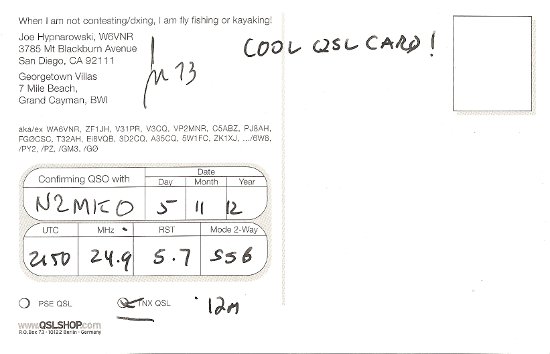 When I am not contesting/dxing, I am fly fishing or kayaking!
Joe Hypnarowski, W6VNR
3785 Mt Blackburn Avenue
San Diego, CA 92111
Georgetown Villas
7 Mile Beach,
Grand Cayman, BWI
73
COOL QSL CARD!
aka/ex WA6VNR, ZF1JH, V31PR, V3CQ, VP2MNR, C5ABZ, PJ8AH,
FG0CSC, T32AH, EI8VQB, 3D2CQ, A35CQ, 5W1FC, ZK1XJ, .../6W8,
/PY2, /PZ, /GM3, /G0
Confirming QSO with
Date
Day Month Year
N2MKO 5 11 12
UTC MHz RST Mode 2-Way
2150 24.9 5.7 SSB
PSE QSL TNX QSL 12m
www.QSLSHOP.com
P.O. Box 73 · 10122 Berlin · Germany